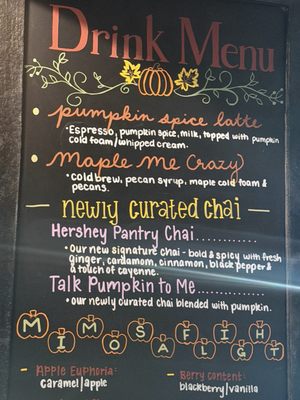 Drink Menu
• pumpkin spice latte
• Espresso, pumpkin spice, milk, topped with pumpkin
cold foam/whipped cream.
• Maple Me Crazy)
• cold brew, pecan syrup, maple cold foam &
pecans.
— newly curated chai —
Hershey Pantry Chai..............
• our new signature chai - bold & spicy with fresh
ginger, cardamom, cinnamon, black pepper &
a touch of cayenne.
Talk Pumpkin to Me...............
• our newly curated chai blended with pumpkin.
MIMOSA FLIGHT
- Apple Euphoria:
caramel/apple
- Berry Content:
blackberry/vanilla